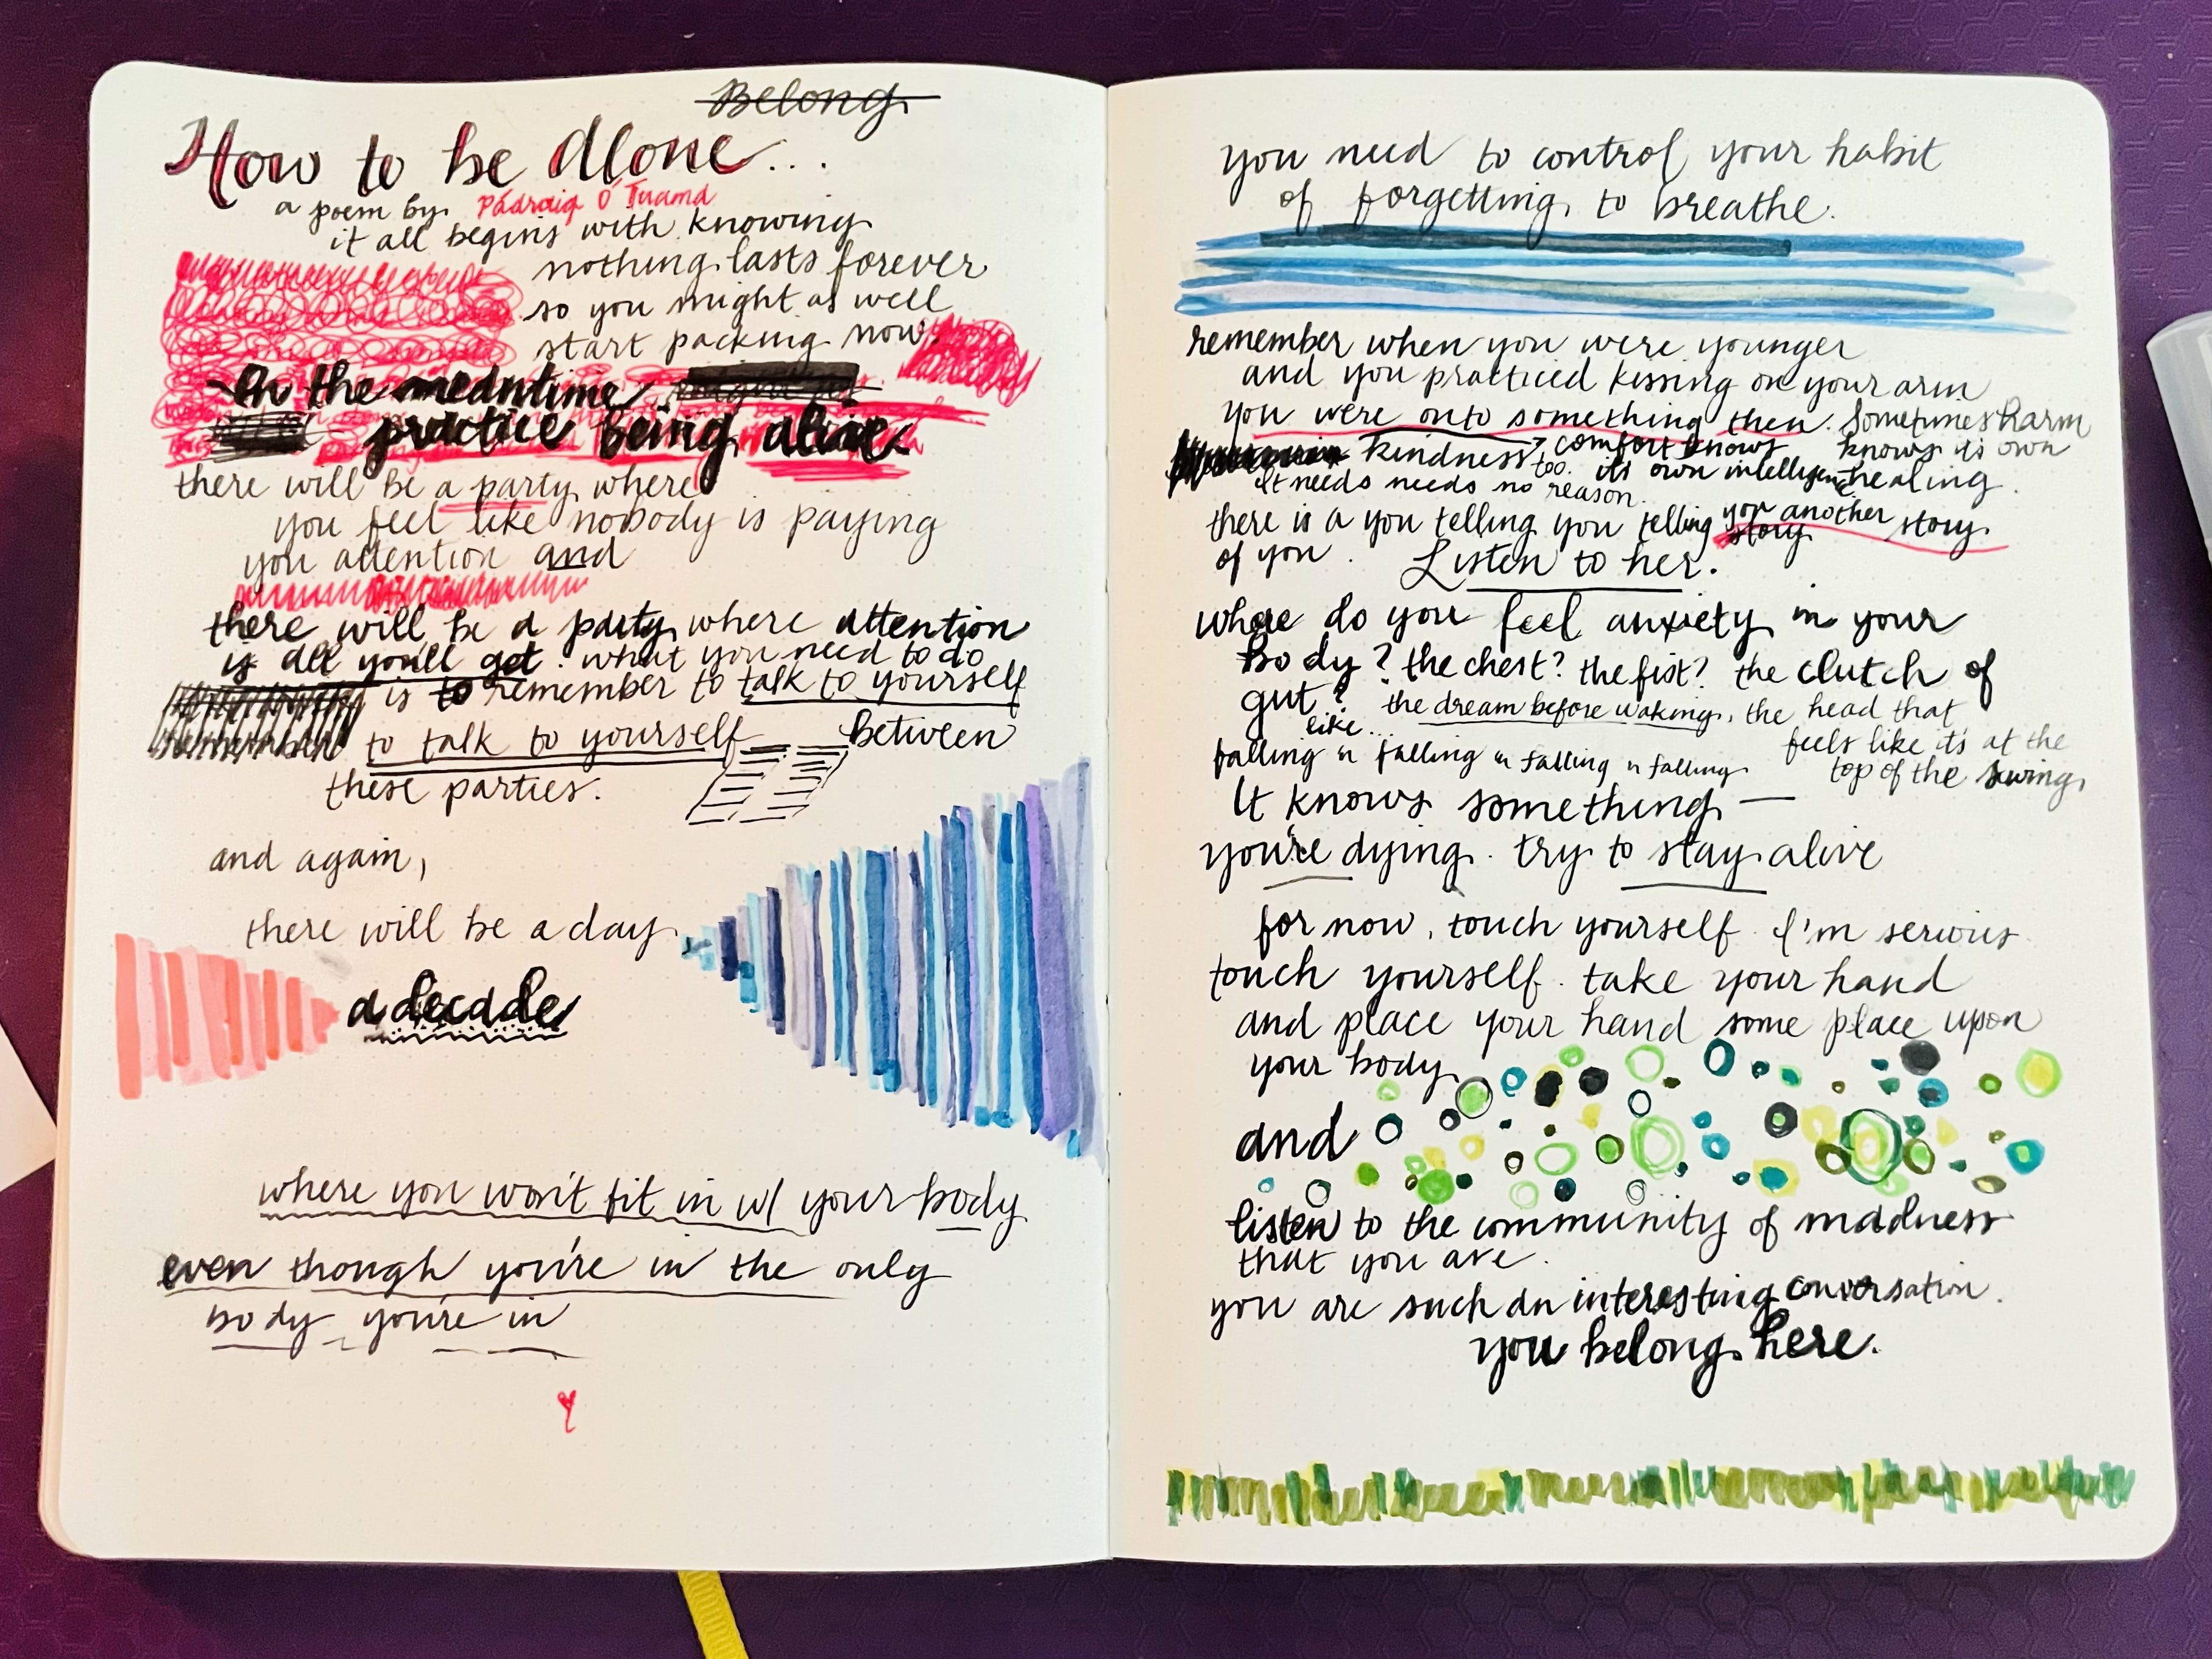 Belong
How to be Alone...
a poem by Pádraig Ó Tuama
it all begins with knowing
nothing lasts forever
so you might as well
start packing now.
In the meantime,
practice being alive
there will be a party where
you feel like nobody is paying
you attention and
there will be a party where attention
is all you'll get. what you need to do
is to remember to talk to yourself
to talk to yourself between
these parties.
and again,
there will be a day
a decade
where you won't fit in w/ your body
even though you're in the only
body you're in
you need to control your habit
of forgetting to breathe.
remember when you were younger
and you practiced kissing on your arm
you were onto something then. Sometimes harm
knows its own
healing.
kindness, too. comfort knows
its own intelligence
It needs needs no reason.
there is a you telling you telling you another story story
of you. Listen to her.
where do you feel anxiety in your
body? the chest? the fist? the clutch of
gut? the dream before waking, the head that
feels like it's at the
top of the swing,
like...
falling n falling n falling n falling
It knows something —
you're dying. try to stay alive
for now, touch yourself. I'm serious
touch yourself. take your hand
and place your hand some place upon
your body
and
listen to the community of madness
that you are.
you are such an interesting conversation.
you belong here.